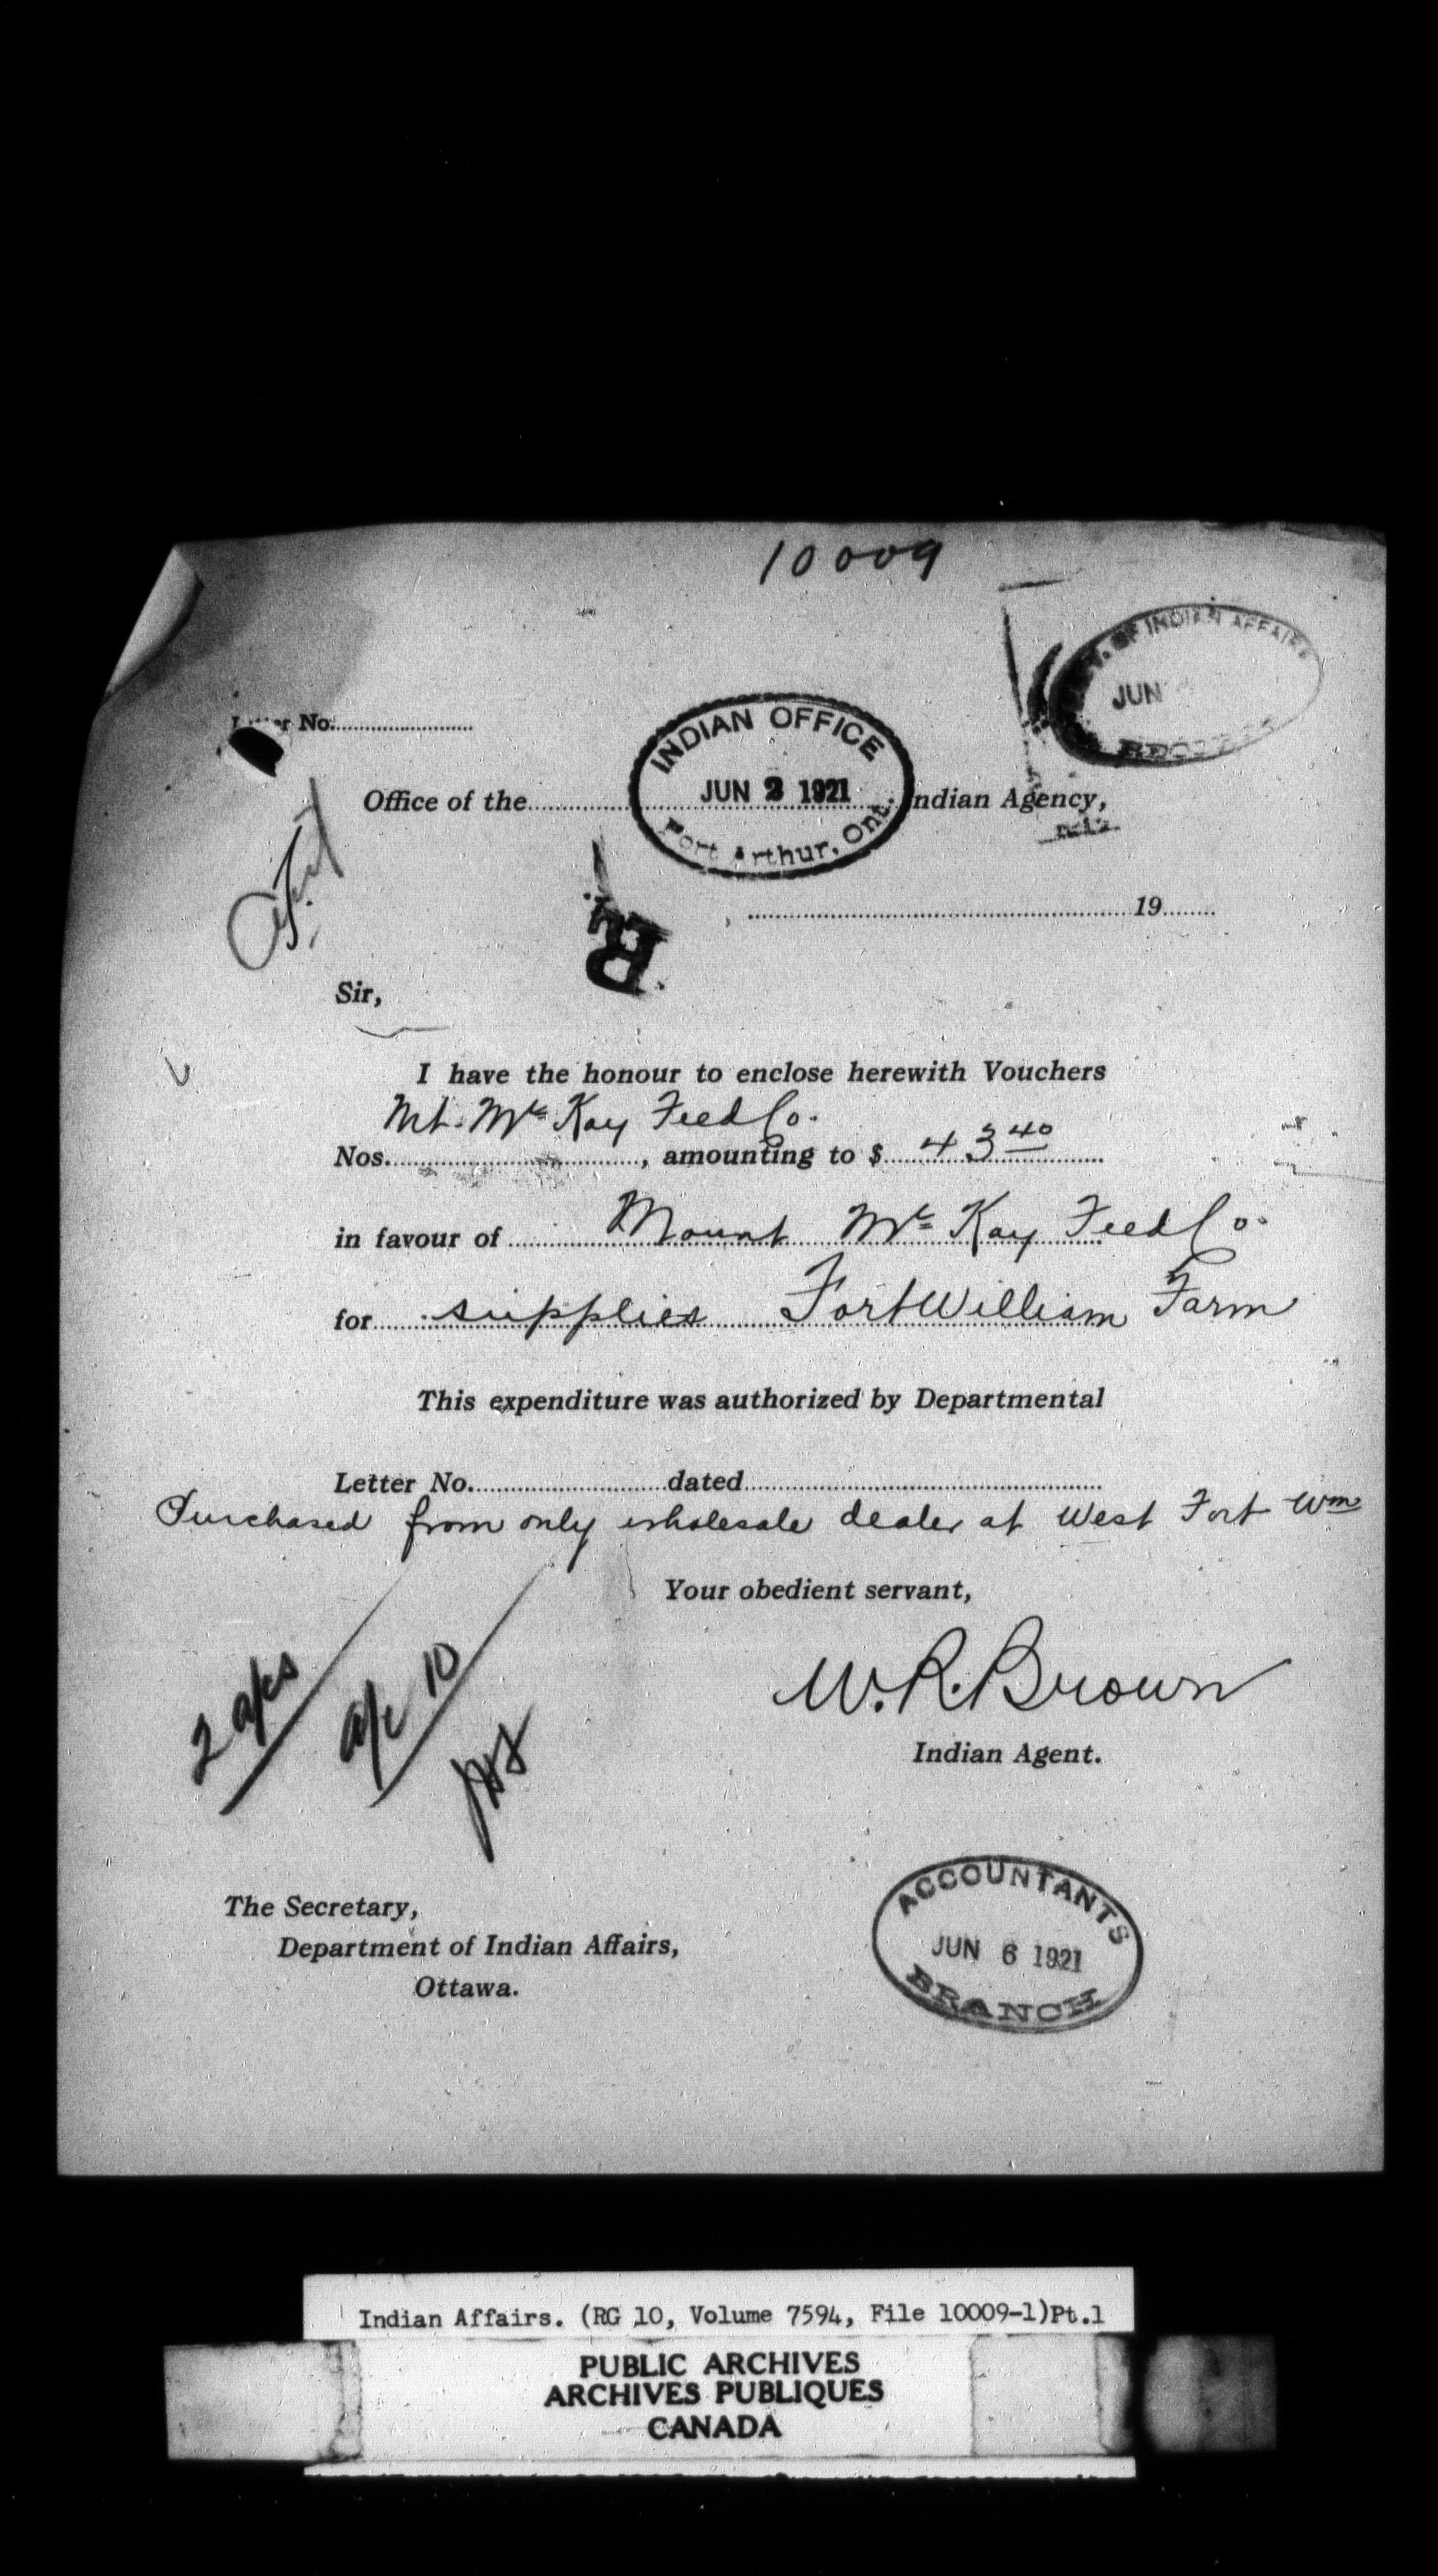 10009
OF INDIAN AFFAIRS
JUN
Letter No.
INDIAN OFFICE
JUN 2 1921
Port Arthur, Ont.
Office of the Indian Agency,
19
R.
Sir,
I have the honour to enclose herewith Vouchers
Mt. McKay Feed Co.
Nos. , amounting to $ 43 40
in favour of Mount McKay Feed Co.
for supplies Fort William Farm
This expenditure was authorized by Departmental
Letter No. dated
Purchased from only wholesale dealer at West Fort Wm
Your obedient servant,
2 a/cs
a/c 10
W. R. Brown
Indian Agent.
The Secretary,
Department of Indian Affairs,
Ottawa.
ACCOUNTANTS
JUN 6 1921
BRANCH
Indian Affairs. (RG 10, Volume 7594, File 10009-1)Pt.1
PUBLIC ARCHIVES
ARCHIVES PUBLIQUES
CANADA